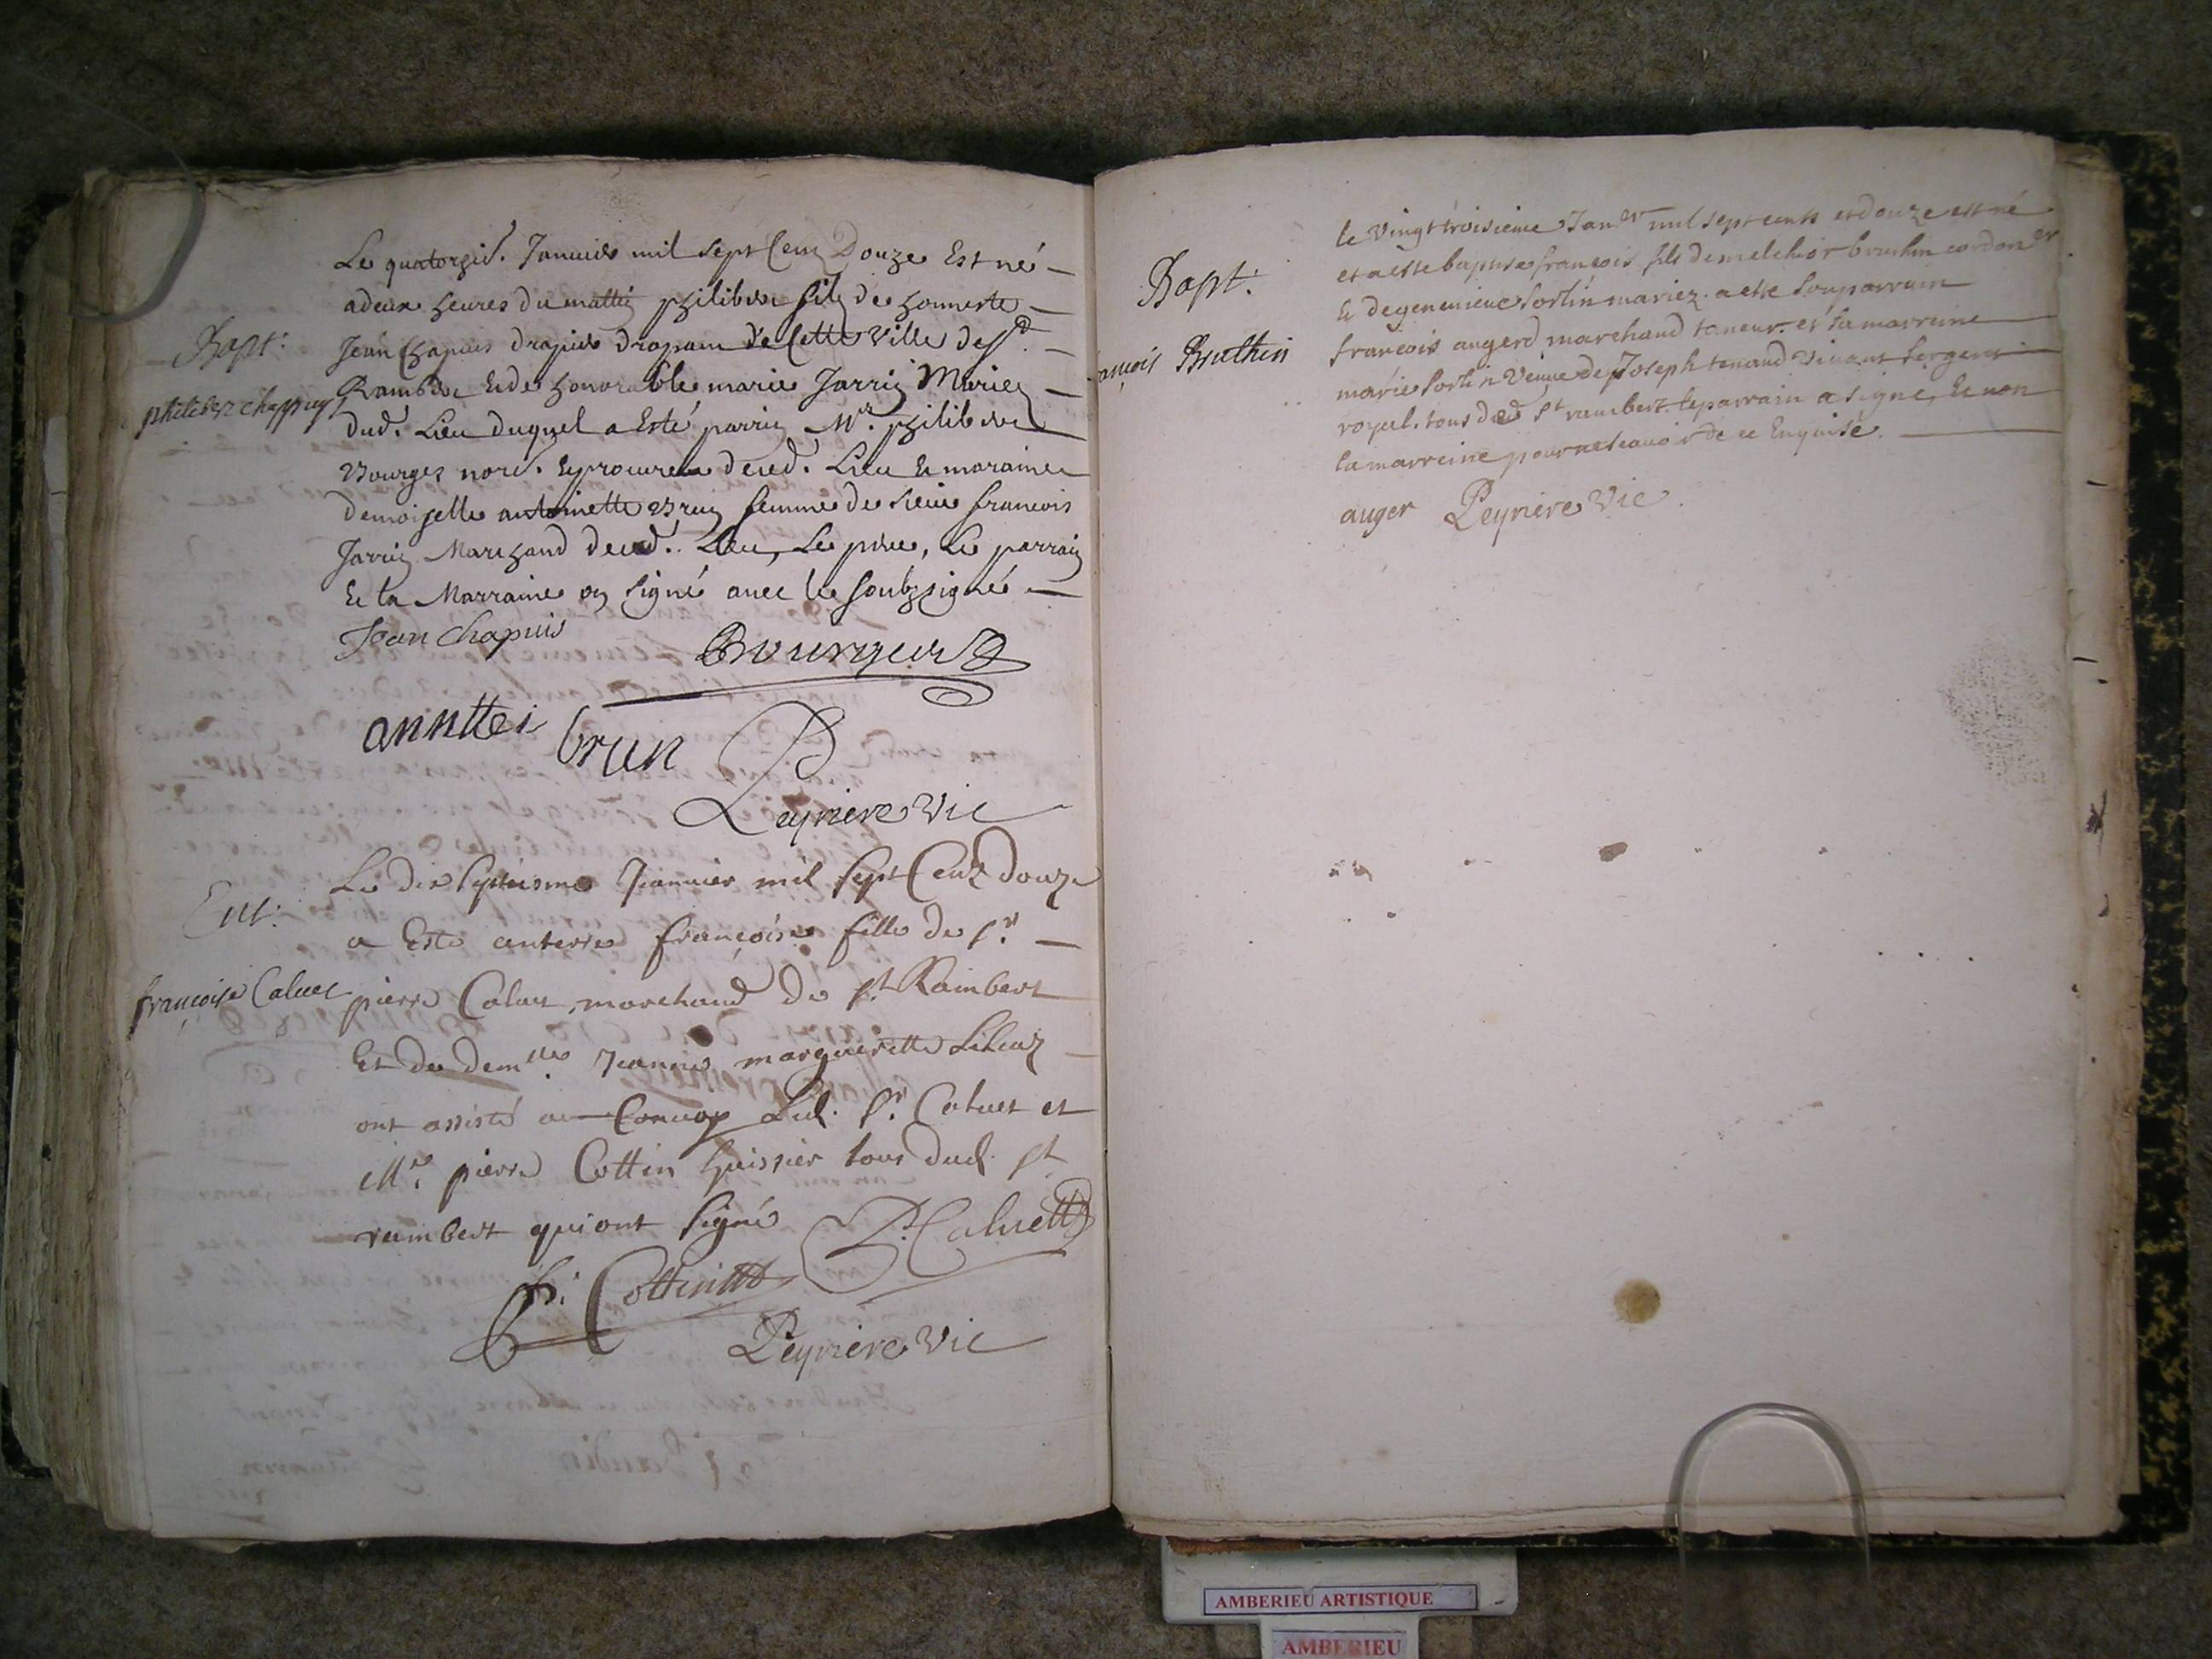 Bapt:
philibert chappuys
Le quatorzie. Januier mil sept Cens Douze Est né
a deux heures du mattin philibert fils de honneste
Jean Chapuis drapier drapant de Cette ville de St
Rambert Et de honorable marie Jarrin Mariez
dud. Lieu duquel a Esté parrin Mr. philibert
Bourges nore. Et procureur dud. Lieu Et maraine
demoiselle antoinette Brun femme de sieur francois
Jarrin Marchand dud. Lieu, Le pere, Le parrain
Et la Marraine on signé avec le soubzsigné
Jean Chapuis
Bourges
annttei brun
Peyriere Vic
Ent:
françoise Caluet
Le dix septiesme Januier mil sept Cens douze
a Esté enterré françoise fille de sr.
pierre Caluet marchand de St Rambert
Et de demlle. Jeanne margueritte
ont assisté au Conuoy Led. sr. Caluet et
Mre. pierre Cottin huissier tous dud. St
rambert qui ont signé
P. Caluett
Cottin
Peyriere Vic
Bapt:
ançois Bruthin
le vingt troisieme Janer mil sept cents et douze est né
et a esté baptisé françois fils de melchior bruthin cordoner
Et de genevieue sortin mariez. a esté son parrain
françois augerd marchand taneur. et sa marreine
marie sortin Veuue de Joseph tenand Viuant sergent
royal. tous dud St rambert. le parrain a signe, Et non
la marreine pour ne scauoir de ce Enquise.
auger Peyriere Vic
AMBERIEU ARTISTIQUE
AMBERIEU